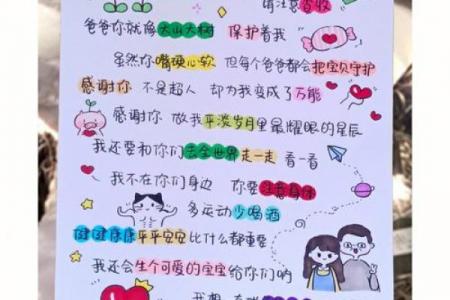 请注意查收
爸爸你就像大山大树 保护着我
虽然你嘴硬心软 但每个爸爸都会把宝贝守护
感谢你 不是超人 却为我变成了万能
感谢你 做我平淡岁月里最耀眼的星辰
我还要和你们去全世界走一走 看一看
我不在你们身边 你要注意身体
多运动少喝酒
健健康康平平安安 比什么都重要
我还会生个可爱的宝宝给你们哟
我想